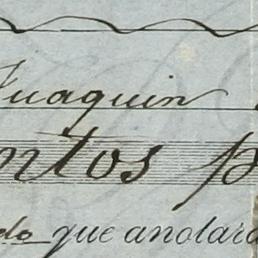 Juaquin
ntos p
do que anotara